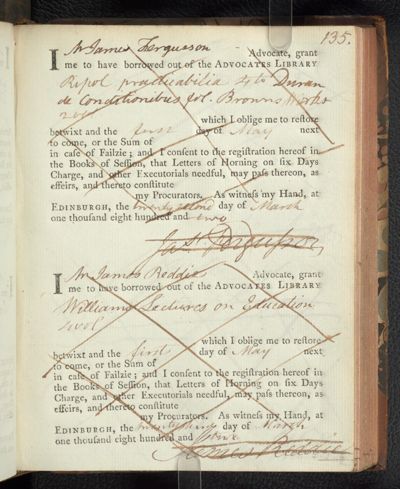 135.
I Mr James Ferguson Advocate, grant
me to have borrowed out of the ADVOCATES LIBRARY
Ripol practicabilia 4to Duran
de Conditionibus fol. Browns Works
2 vol
which I oblige me to restore
betwixt and the first day of May next
to come, or the Sum of
in case of Failzie; and I consent to the registration hereof in
the Books of Session, that Letters of Horning on six Days
Charge, and other Executorials needful, may pass thereon, as
effeirs, and thereto constitute
my Procurators. As witness my Hand, at
EDINBURGH, the twenty second day of March
one thousand eight hundred and two
Jas Ferguson
I Mr James Reddie Advocate, grant
me to have borrowed out of the ADVOCATES LIBRARY
Williams Lectures on Education
vol
which I oblige me to restore
betwixt and the first day of May next
to come, or the Sum of
in case of Failzie; and I consent to the registration hereof in
the Books of Session, that Letters of Horning on six Days
Charge, and other Executorials needful, may pass thereon, as
effeirs, and thereto constitute
my Procurators. As witness my Hand, at
EDINBURGH, the day of March
one thousand eight hundred and
James Reddie